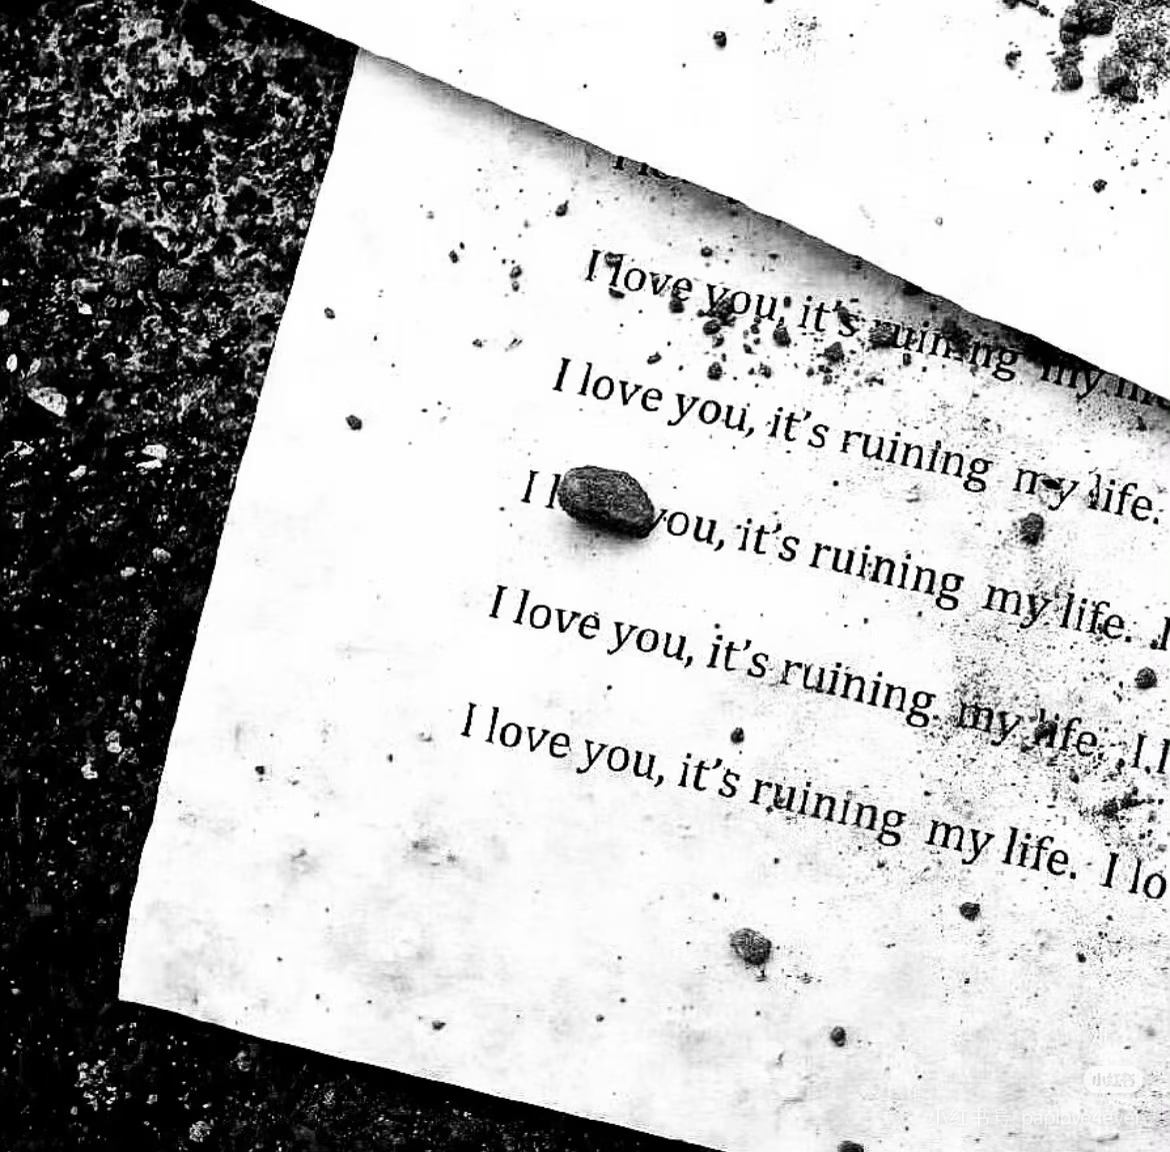 I love you, it's ruining my
I love you, it's ruining my life.
I you, it's ruining my life.
I love you, it's ruining my life. I
I love you, it's ruining my life. I lo
小红书